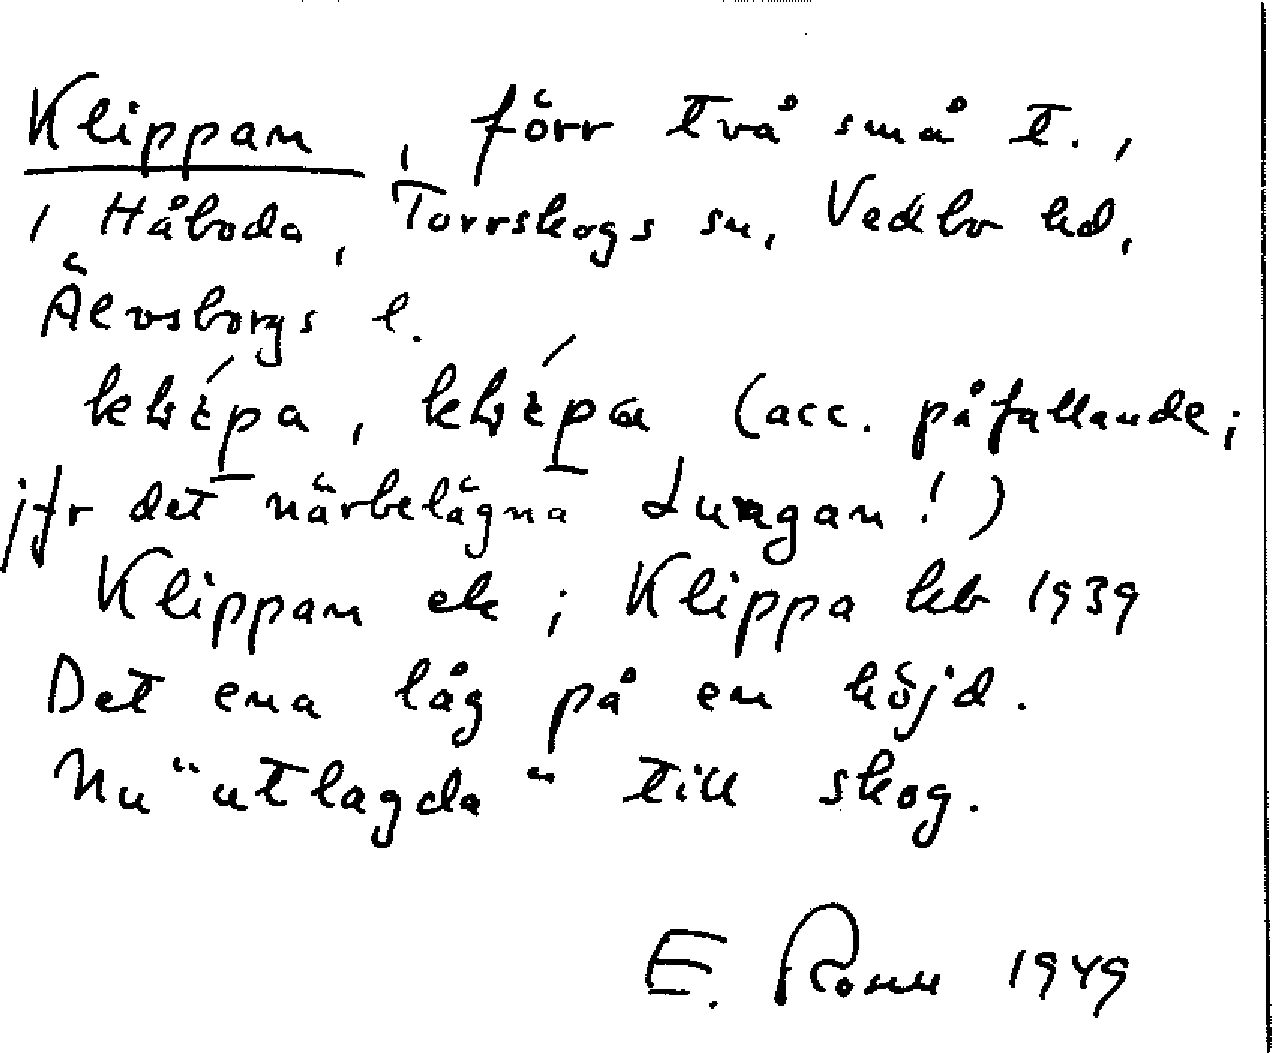 Klippan, förr två små t.,
i Håboda, Torrskogs sn, Vedbo hd,
Älvsborgs l.
(acc. påfallande;
jfr det närbelägna Lungan!)
Klippan ek; Klippa kb 1939
Det ena låg på en höjd.
Nu "utlagda" till skog.
E. Rosell 1949